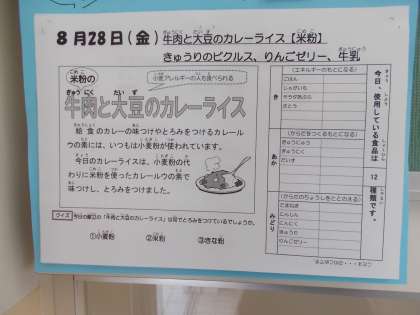 8月28日(金) 牛肉と大豆のカレーライス【米粉】
きゅうりのピクルス、りんごゼリー、牛乳
小麦アレルギーの人も食べられる
米粉の
牛肉と大豆のカレーライス
給食のカレーの味つけやとろみをつけるカレールウの素には、いつもは小麦粉が使われています。
今日のカレーライスは、小麦粉の代わりに米粉を使ったカレールウの素で味つけし、とろみをつけました。
クイズ 今日の献立の「牛肉と大豆のカレーライス」は何でとろみをつけているでしょうか。
①小麦粉 ②米粉 ③きな粉
今日、使用している食品は 12 種類です。
き
(エネルギーのもとになる)
ごはん
じゃがいも
さとう
あか
(からだをつくるもとになる)
ぎゅうにゅう
ぎゅうにく
だいず
みどり
(からだのちょうしをととのえる)
たまねぎ
にんじん
にんにく
きゅうり
りんごゼリー